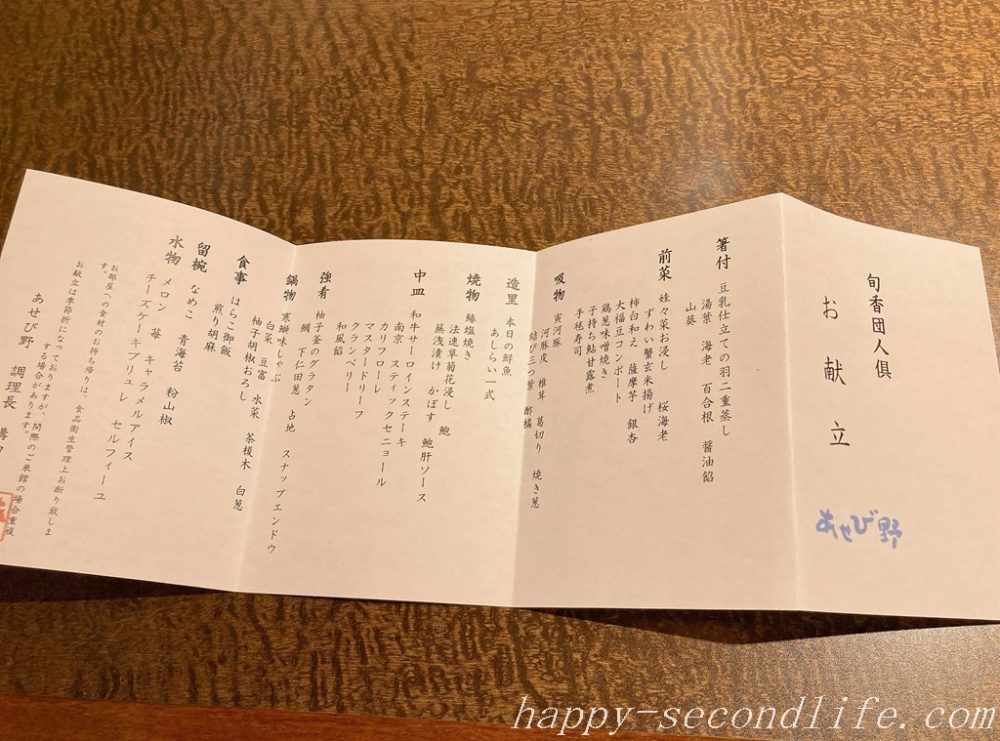 旬香団人倶
お献立
あせび野
箸付 豆乳仕立ての羽二重蒸し
湯葉 海老 百合根 醤油餡
山葵
前菜 娃々菜お浸し 桜海老
ずわい蟹玄米揚げ
柿白和え 薩摩芋 銀杏
大福豆コンポート
鶏葱味噌焼き
子持ち鮎甘露煮
手毬寿司
吸物 寅河豚
河豚皮 椎茸 葛切り 焼き葱
結び三つ葉 酢橘
造里 本日の鮮魚
あしらい一式
焼物 鰆塩焼き
法連草菊花浸し 鮑
蕪浅漬け かぼす 鮑肝ソース
中皿 和牛サーロインステーキ
南京 スティックセニョール
カリフローレ
マスタードリーフ
クランベリー
和風餡
強肴 柚子釜のグラタン
鯛 下仁田葱 占地 スナップエンドウ
鍋物 寒鰤味しゃぶ
白菜 豆富 水菜 茶榎木 白葱
柚子胡椒おろし
食事 はらこ御飯
煎り胡麻
留椀 なめこ 青海苔 粉山椒
水物 メロン 苺 キャラメルアイス
チーズケーキブリュレ セルフィーユ
お部屋への食材のお持ち帰りは、食品衛生管理上お断り致しま
す。
お献立は季節折になっておりますが、間際のご来館の場合重複
する場合があります。
あせび野 調理長